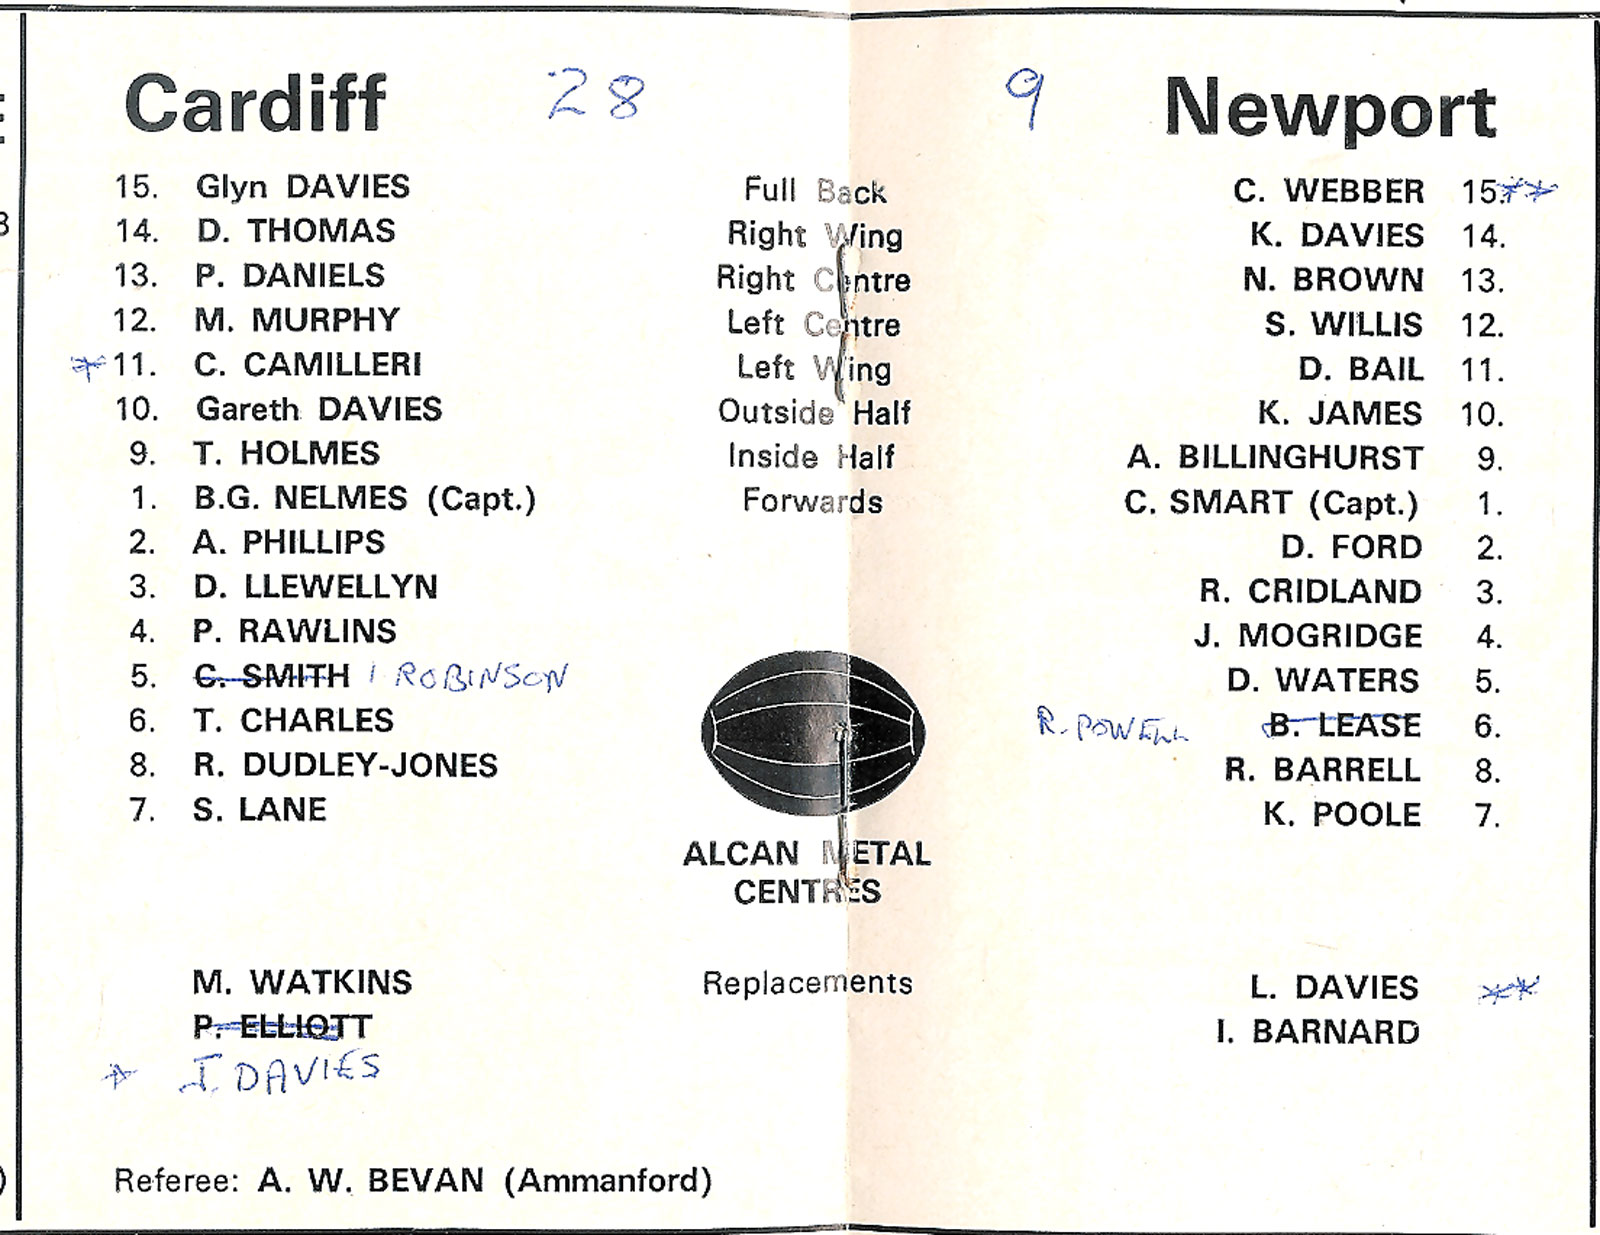 Cardiff 28 9 Newport
15. Glyn DAVIES Full Back C. WEBBER 15.**
14. D. THOMAS Right Wing K. DAVIES 14.
13. P. DANIELS Right Centre N. BROWN 13.
12. M. MURPHY Left Centre S. WILLIS 12.
* 11. C. CAMILLERI Left Wing D. BAIL 11.
10. Gareth DAVIES Outside Half K. JAMES 10.
9. T. HOLMES Inside Half A. BILLINGHURST 9.
1. B.G. NELMES (Capt.) Forwards C. SMART (Capt.) 1.
2. A. PHILLIPS D. FORD 2.
3. D. LLEWELLYN R. CRIDLAND 3.
4. P. RAWLINS J. MOGRIDGE 4.
5. C. SMITH I ROBINSON D. WATERS 5.
6. T. CHARLES R. POWELL B. LEASE 6.
8. R. DUDLEY-JONES R. BARRELL 8.
7. S. LANE K. POOLE 7.
ALCAN METAL
CENTRES
M. WATKINS Replacements L. DAVIES **
P. ELLIOTT I. BARNARD
* I. DAVIES
Referee: A. W. BEVAN (Ammanford)